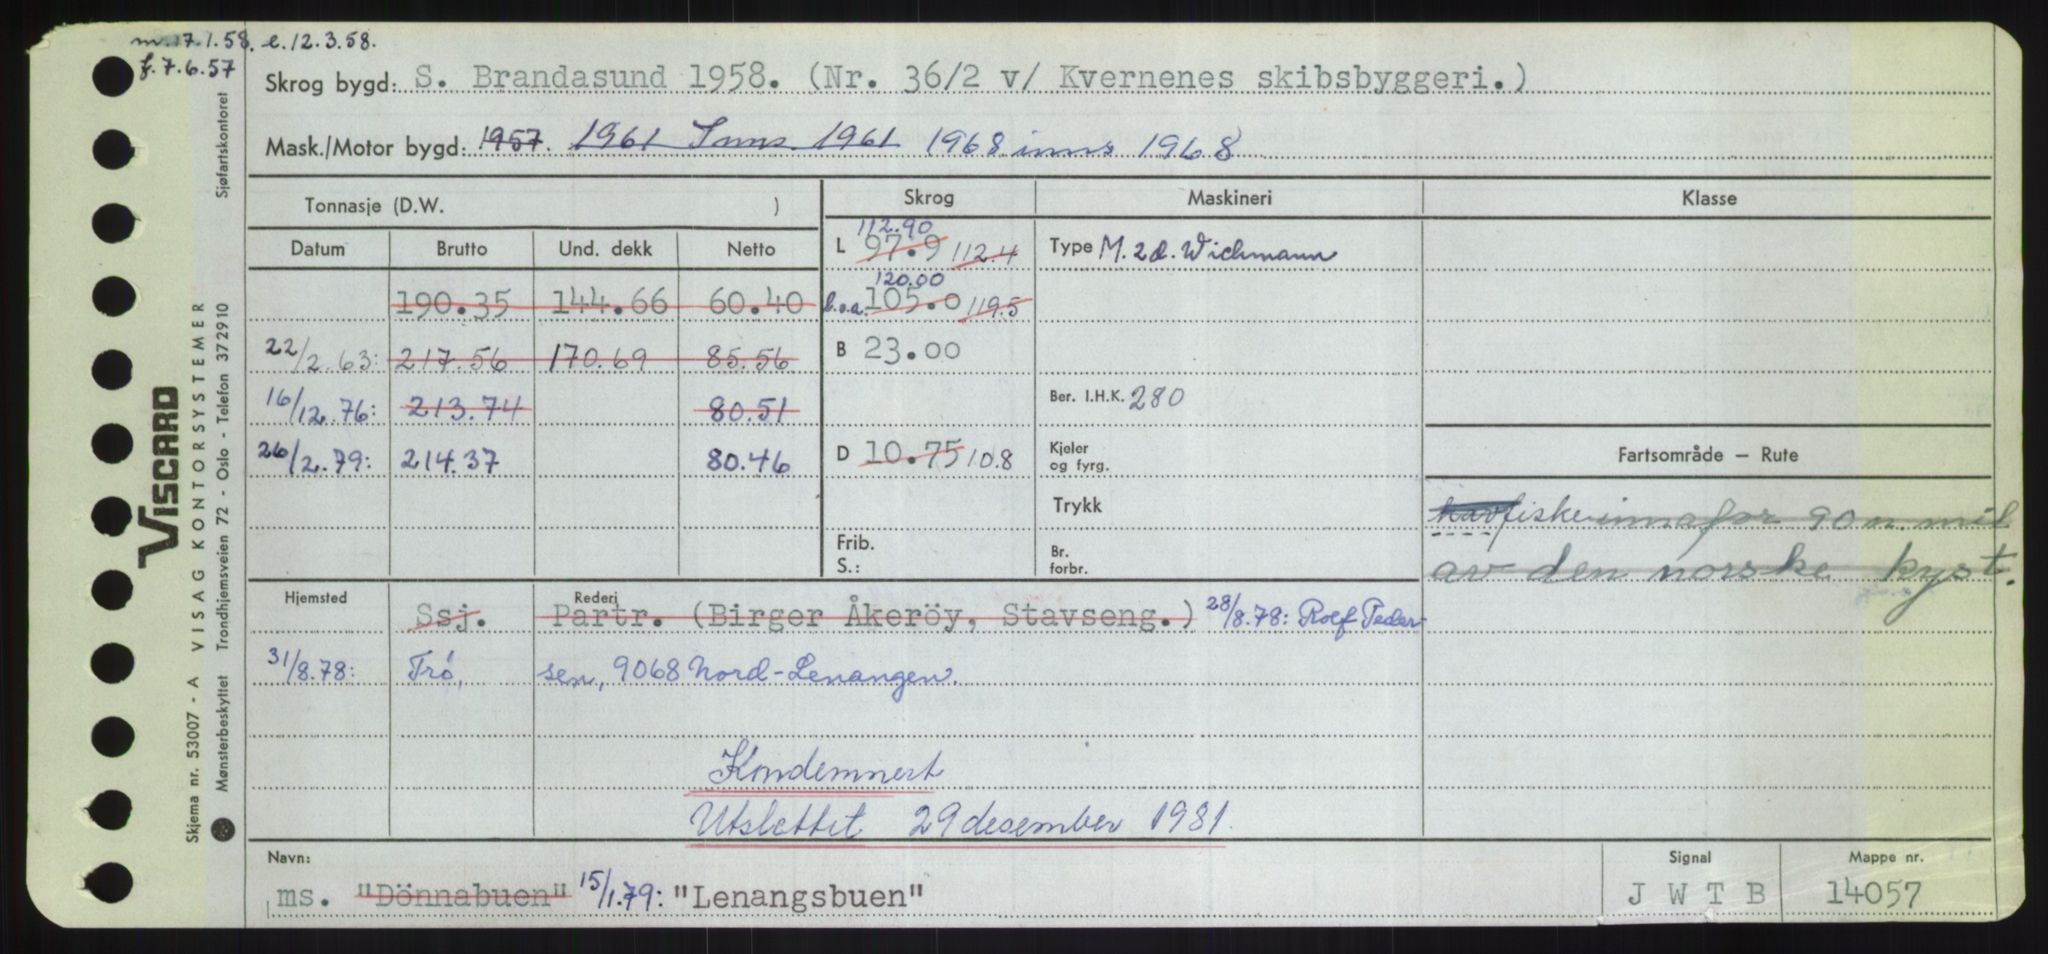 m. 17.1.58. e. 12.3.58.
f. 7.6.57
Skrog bygd: S. Brandasund 1958. (Nr. 36/2 v/ Kvernenes skibsbyggeri.)
Mask./Motor bygd: 1957. 1961 Inns. 1961 1968 inns 1968
Tonnasje (D.W. )
Skrog
Maskineri
Klasse
Datum Brutto Und. dekk Netto
L 97.9 112.4 112.90
Type M. 2 d. Wichmann
190.35 144.66 60.40
l.o.a. 105.0 119.5 120.00
22/2.63: 217.56 170.69 85.56
B 23.00
16/12.76: 213.74 80.51
Ber. I.H.K. 280
26/2.79: 214.37 80.46
D 10.75 10.8
Kjeler og fyrg.
Fartsområde – Rute
Trykk
havfiske innafor 90 n. mil
av den norske kyst.
Frib. S.:
Br. forbr.
Hjemsted
Rederi
Ssj. Partr. (Birger Åkeröy, Stavseng.) 28/8.78: Rolf Peder-
31/8.78: Trö, sen, 9068 Nord-Lenangen.
Kondemnert
Utslettet 29 desember 1981.
Navn:
Signal
Mappe nr.
ms. "Dönnabuen" 15/1.79: "Lenangsbuen"
J W T B
14057
VISCARD
Skjema nr. 53007 - A VISAG KONTORSYSTEMER
Mønsterbeskyttet Trondhjemsveien 72 - Oslo - Telefon 372910 Sjøfartskontoret